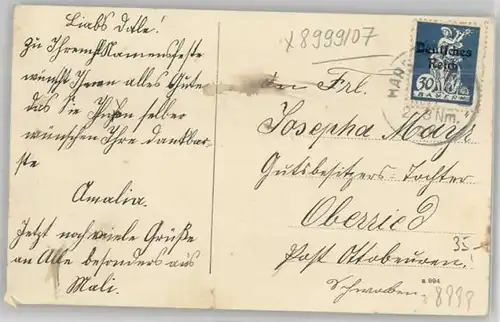 Liabs Datle!
Zu Ihrem Namensfeste
wünscht Ihnen alles Gute
das Sie Ihnen selber
wünschen Ihre dankbar-
ste
Amalia.
Jetzt noch viele Grüße
an Alle besonders aus
Mali.
x8999107
Deutsches
Reich
30
BAYERN
Nm.
den Frl.
Josepha Mayr
Gutsbesitzers-Tochter
Oberried
Post Ottobeuren!
Schwaben
35-
a 994
8999